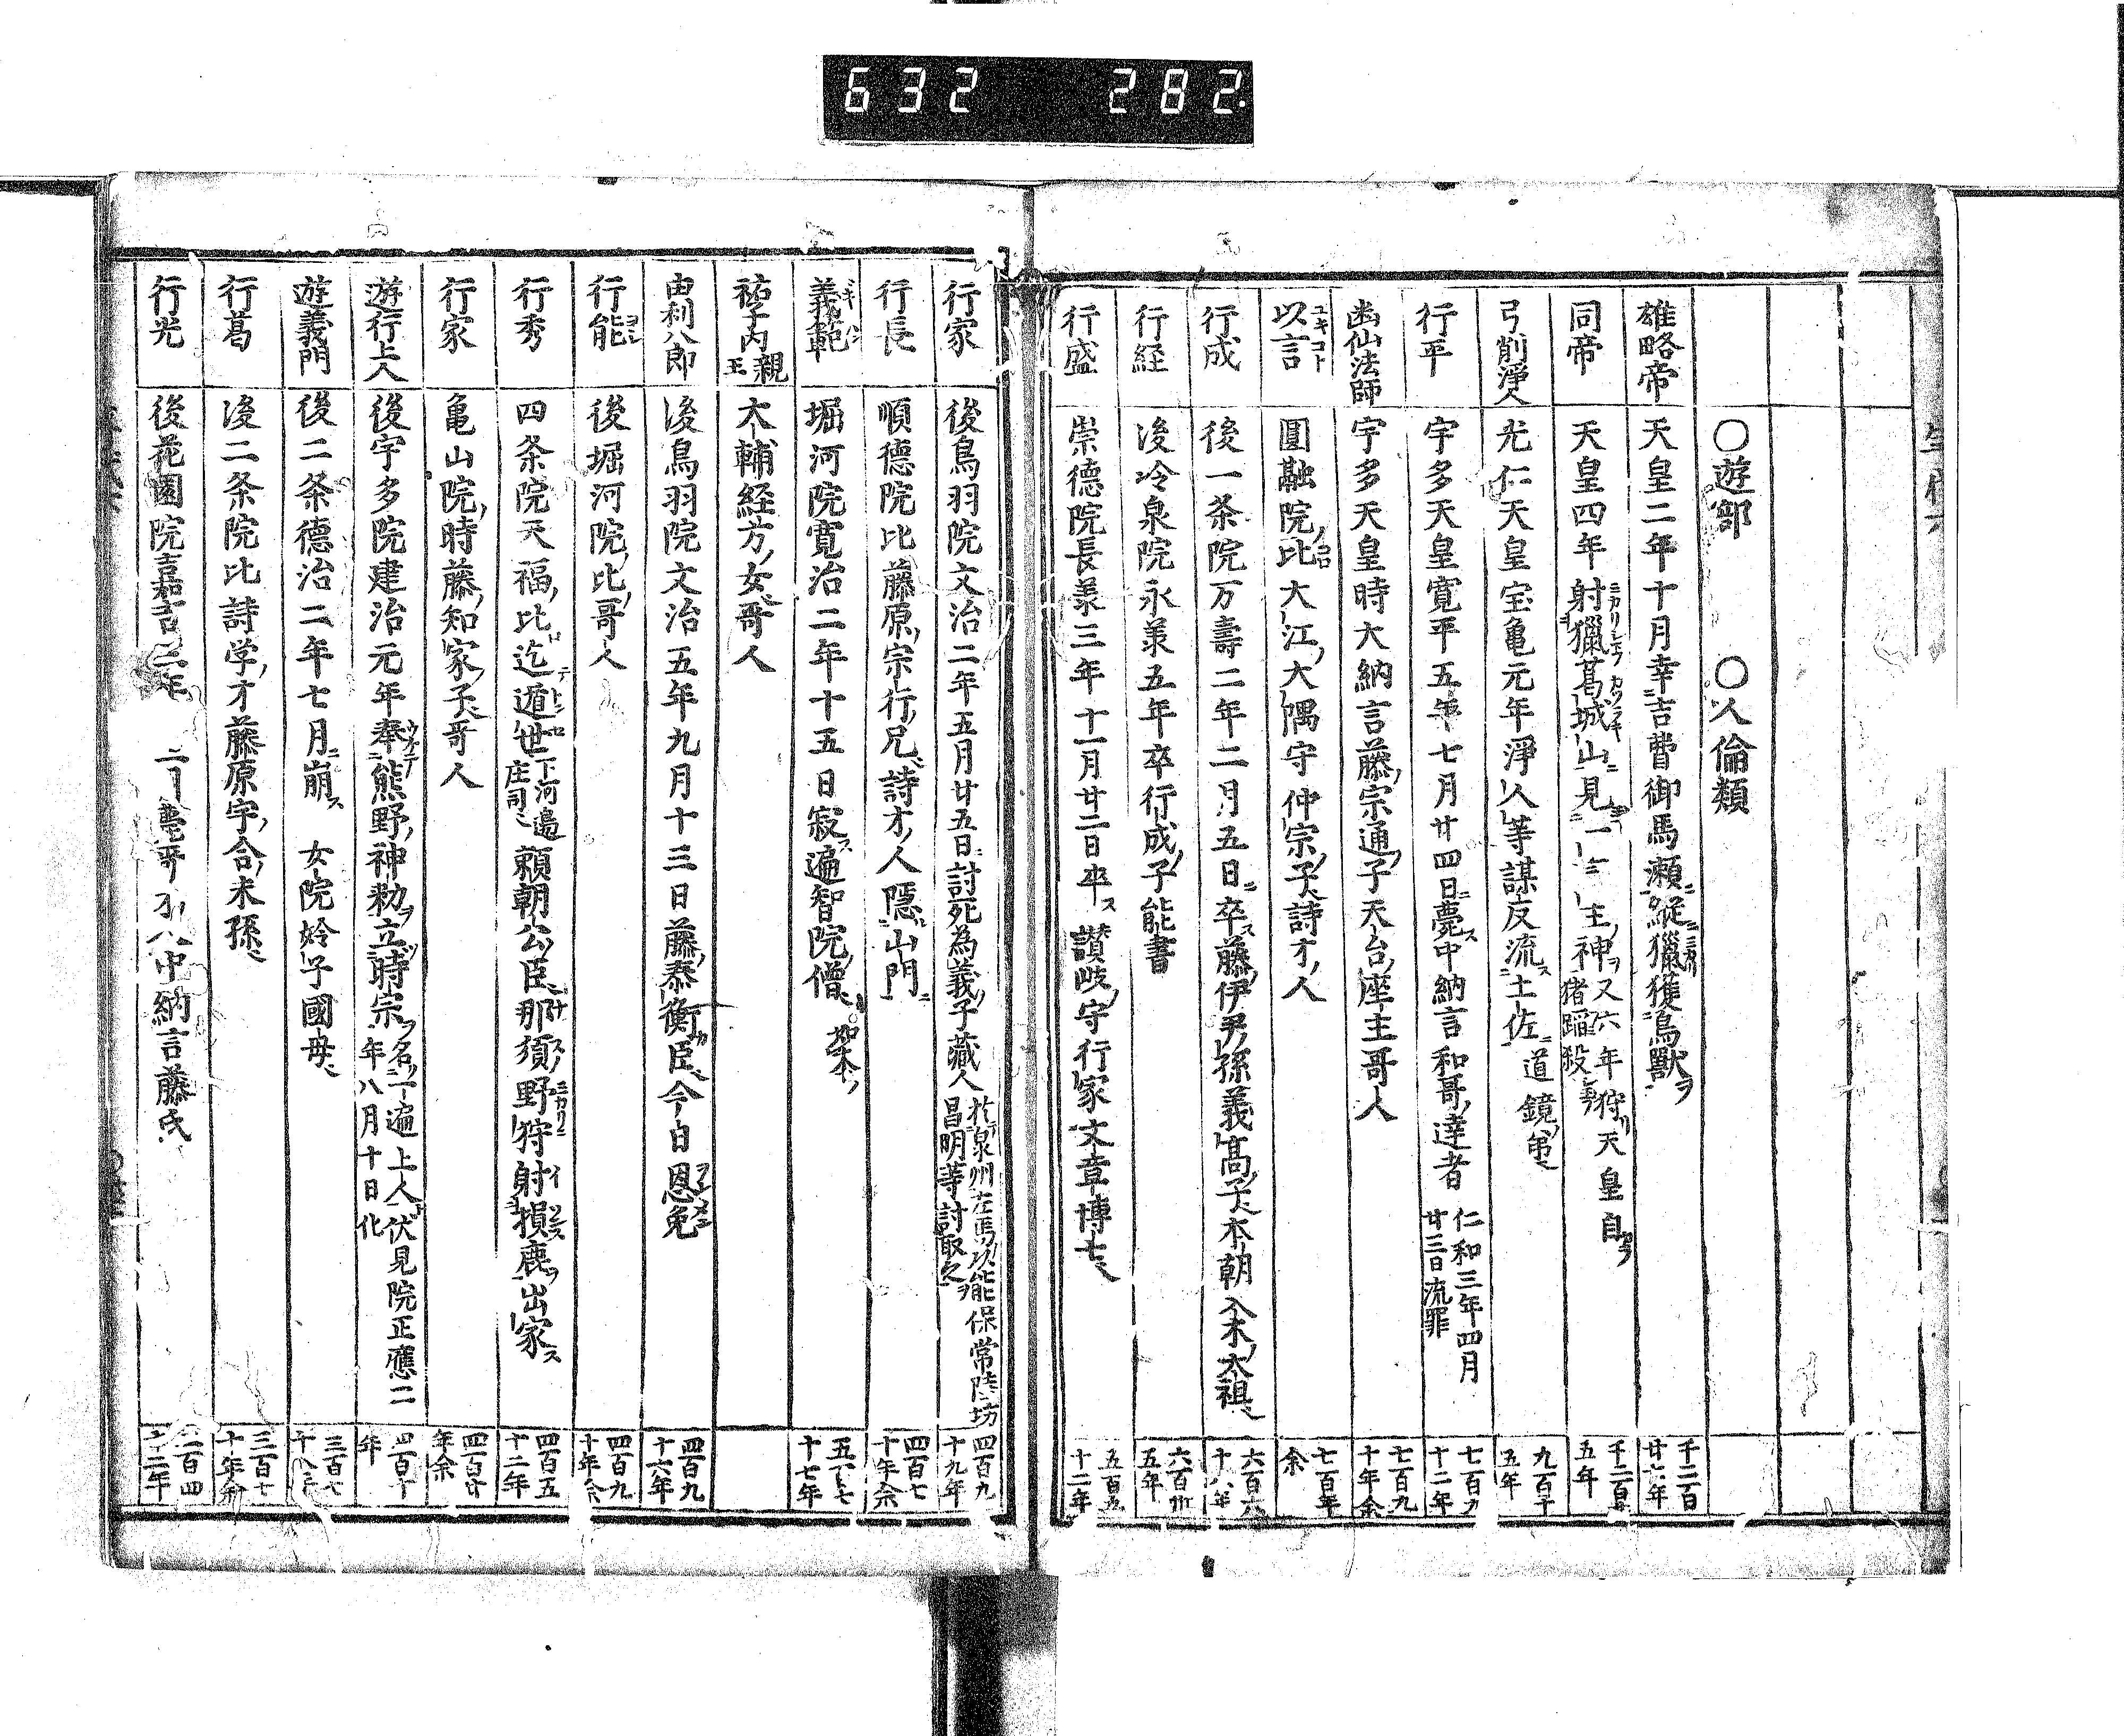 632 282.
○遊部 ○人倫類
雄略帝 天皇二年十月幸吉野御馬瀬縦獵獲鳥獸ヲ 千二百
同帝 天皇四年射獵葛城山ニ見 神ヲ又六年狩天皇自
猪踏殺
五年
弓削淨人 光仁天皇宝亀元年淨人等謀反流ス土佐ニ道鏡弟 九百十
五年
行平 宇多天皇寛平五年七月廿四日ニ薨ス中納言和哥ノ達者 仁和三年四月
廿三日流罪 七百九
十二年
幽仙法師 宇多天皇時大納言藤ノ宗通ノ子天台ノ座主哥人 七百九
十年余
以言 ユキコト 圓融院ノ比大江ノ大隅守仲宗ノ子詩才ノ人 七百年
余
行成 後一条院万壽二年二月五日ニ卒ス藤ノ伊尹ノ孫義高ノ子本朝 太祖 六百六
行経 後冷泉院永義五年卒行成ノ子能書 六百
五年
行盛 崇德院長義三年十一月廿二日卒ス讃岐ノ守行家文章博士 五百五
十二年
行家 後鳥羽院文治二年五月廿五日ニ討死為義ノ子藏人 於泉州 保常陸坊
昌明等討取之 四百九
十九年
行長 順德院比藤原ノ宗行ノ兄詩才ノ人隱山門ニ 四百七
十年余
義範 堀河院寛治二年十五日寂ス遍智院ノ僧 十七年
祐子内親王 大輔経方ノ女哥人
由利八郎 後鳥羽院文治五年九月十三日藤ノ泰衡臣今日恩免 四百九
十六年
行能 後堀河院ノ比ノ哥人 四百九
十年余
行秀 四条院天福ノ比迄遁世下河邊
庄司 頼朝公ノ臣那須ノ野狩射損鹿ヲ出家ス 四百五
十二年
行家 亀山院ノ時藤ノ知家ノ子哥人 四百廿
年余
遊行上人 後宇多院建治元年奉熊野ノ神勅ヲ立時宗ヲ名一遍上人 伏見院正應二
年八月十日化 四百十
年
遊義門 後二条德治二年七月ニ崩ス 女院姈子國母 三百七
行葛 後二条院比詩学ノ才藤原宇合ノ末孫 三百七
十年余
行光 後花園院嘉吉 中納言藤氏 二百四
十二年